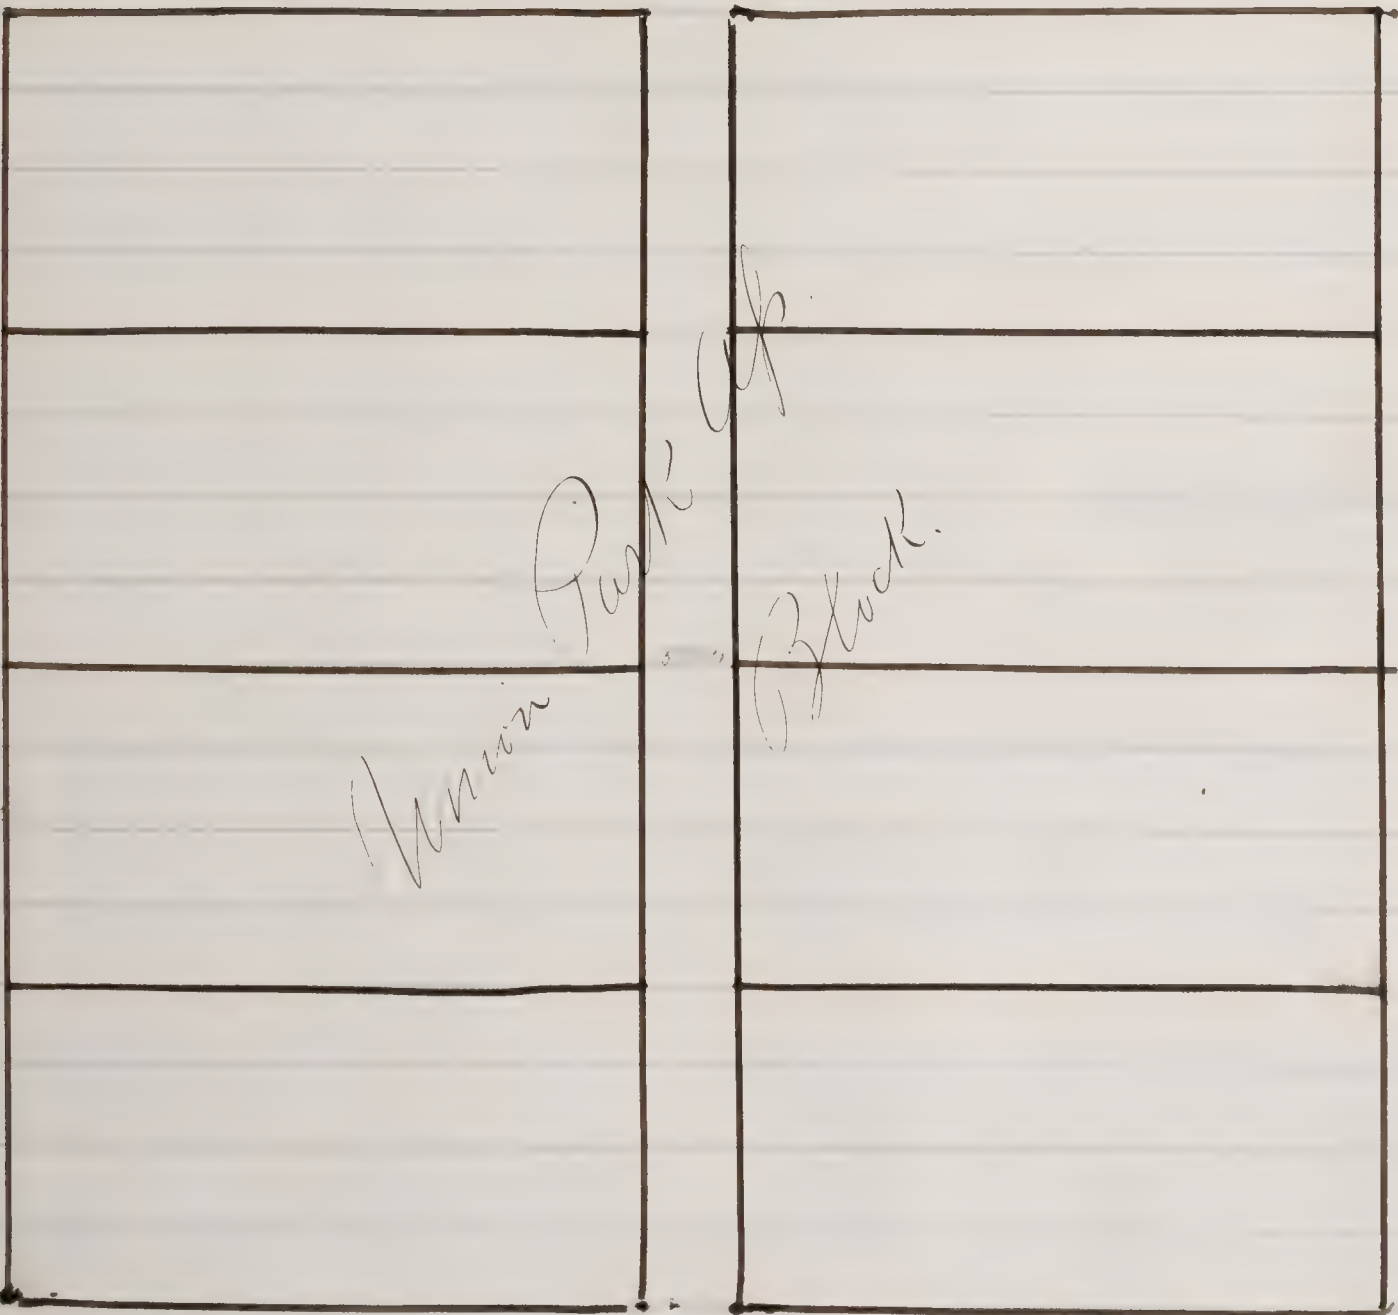 Union Park
Block.